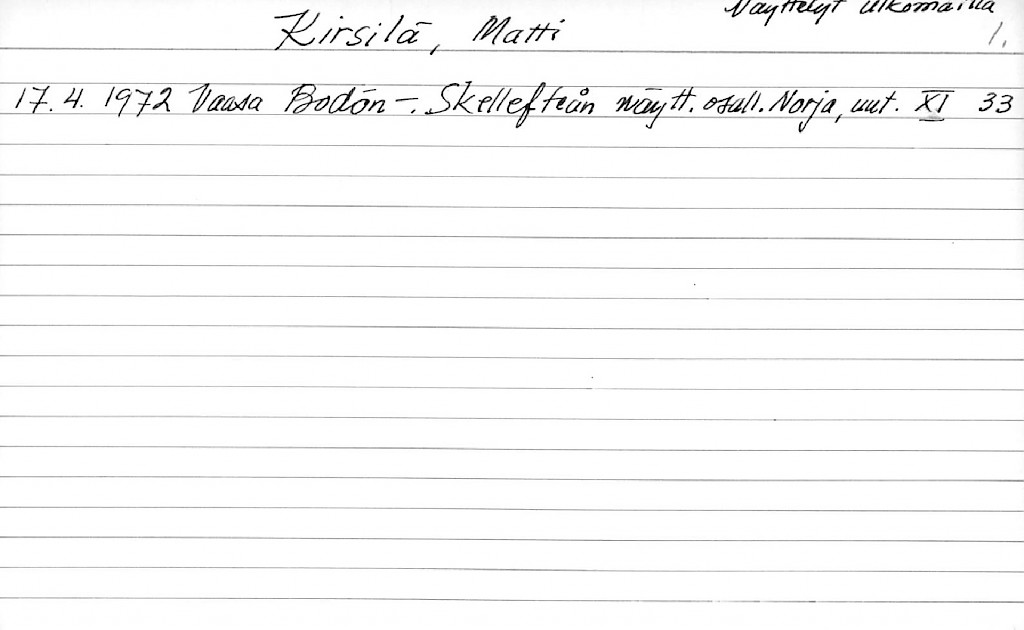 Näyttelyt ulkomailla
Kirsilä, Matti
1.
17.4. 1972 Vaasa Bodön-. Skellefteån näytt. osall. Norja, uut. XI 33